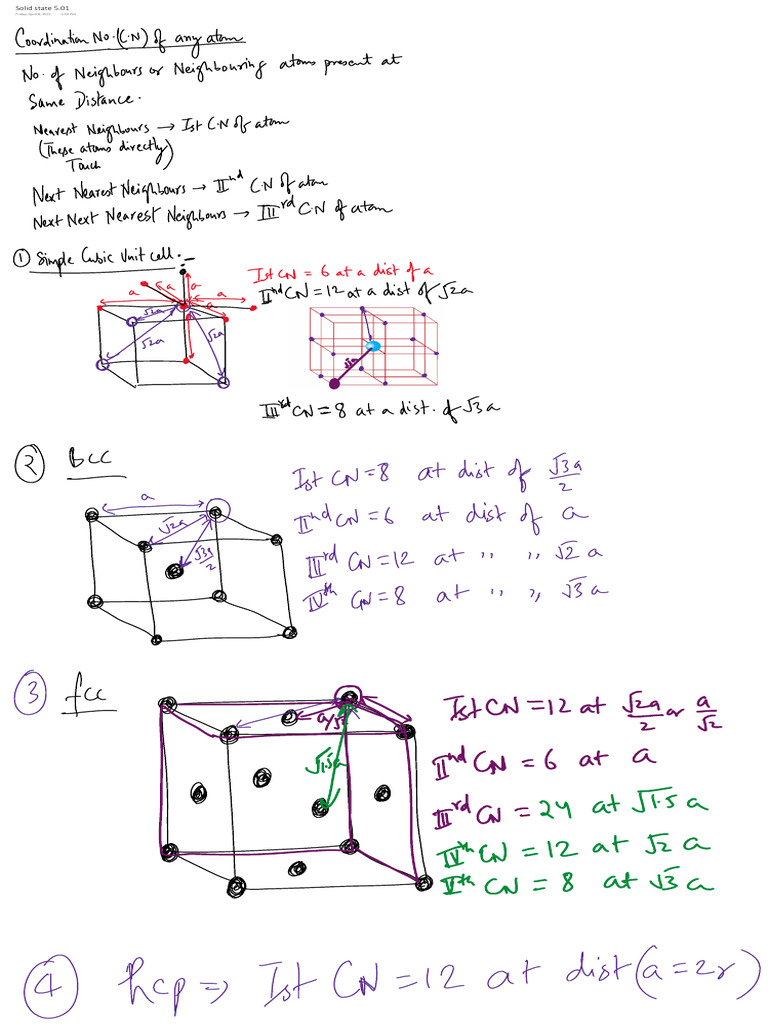 Solid state S.01
Coordination No.(C.N) of any atom
No. of Neighbours or Neighbouring atoms present at
Same Distance.
Nearest Neighbours → Ist C.N of atom
(These atoms directly)
Touch
Next Nearest Neighbours → IInd C.N of atom
Next Next Nearest Neighbours → IIIrd C.N of atom
① Simple Cubic Unit cell.
Ist CN = 6 at a dist of a
IInd CN = 12 at a dist of √2a
a
a
a
a
a
√2a
√2a
√2a
√3a
IIIrd CN = 8 at a dist. of √3 a
② bcc
Ist CN = 8 at dist of √3a/2
IInd CN = 6 at dist of a
IIIrd CN = 12 at " " √2 a
IVth CN = 8 at " " √3 a
a
√2a
√3a/2
③ fcc
Ist CN = 12 at √2a/2 or a/√2
IInd CN = 6 at a
IIIrd CN = 24 at √1.5 a
IVth CN = 12 at √2 a
Vth CN = 8 at √3 a
a/√2
√1.5a
④ hcp ⇒ Ist CN = 12 at dist (a = 2r)